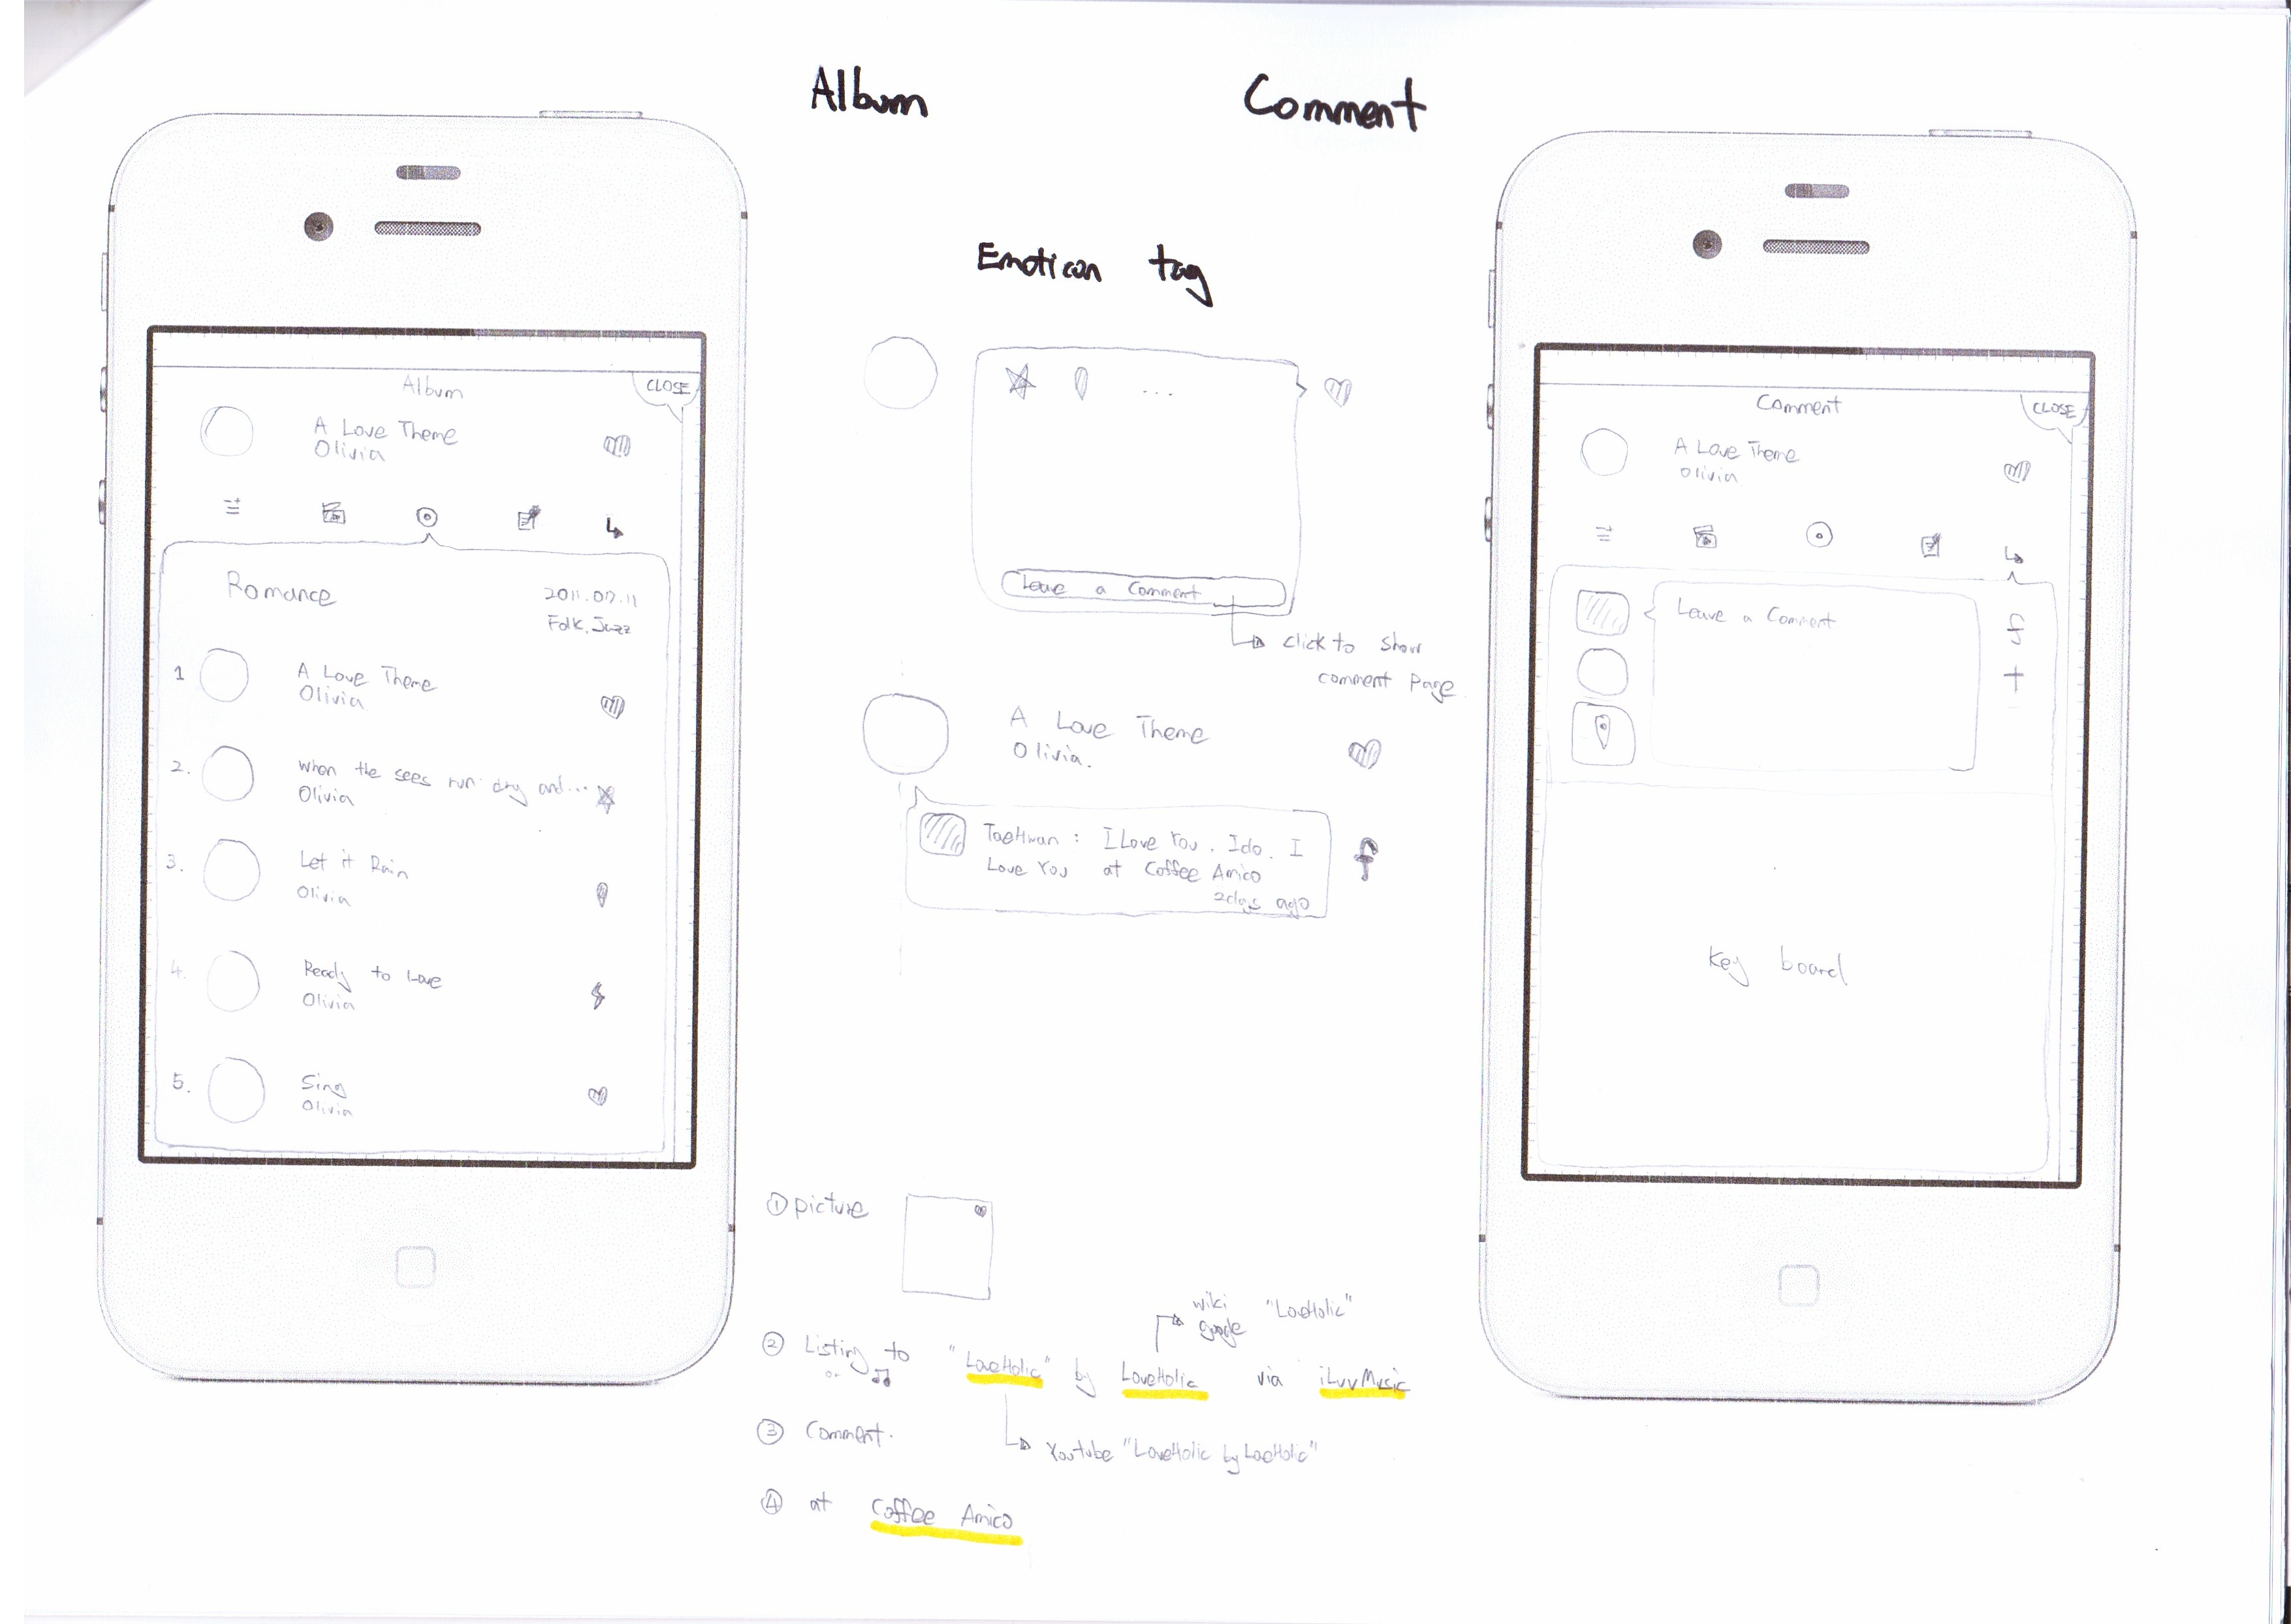 Album
Comment
Emoticon tag
Album
CLOSE
A Love Theme
Olivia
Romance
2011.07.11
Folk, Jazz
1
A Love Theme
Olivia
2.
When the sees run dry and...
Olivia
3.
Let it Rain
Olivia
4.
Ready to Love
Olivia
5.
Sing
Olivia
...
Leave a Comment
click to show
comment page
A Love Theme
Olivia.
TaeHwan : I Love You. I do. I
Love You at Coffee Amico
2dys ago
f
① picture
② Listing to "LoveHolic" by LoveHolic via iLuvMusic
wiki "LoveHolic"
google
Youtube "LoveHolic by LoveHolic"
③ Comment.
④ at Coffee Amico
Comment
CLOSE
A Love Theme
Olivia
Leave a Comment
f
+
Key board